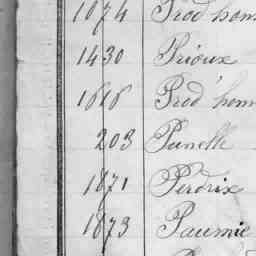 1674 Prod'hom
1430 Prioux
1616 Prod'hom
203 Punelle
1871 Perdrix
1873 Paumie